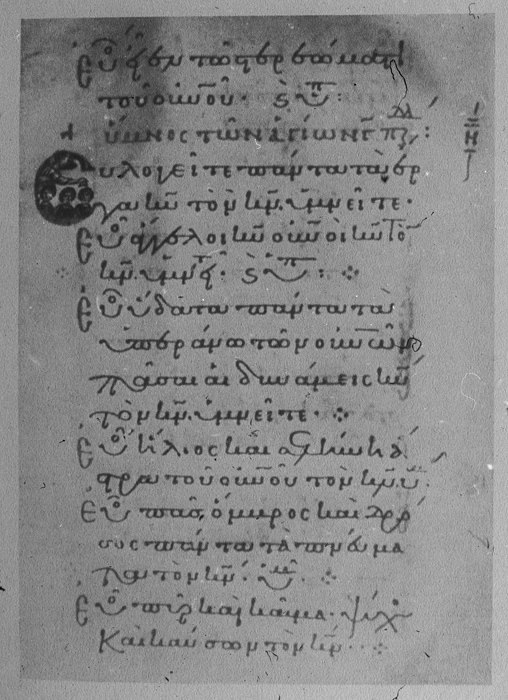 Εὐ εἶ ἐν τῶ στερεώματι
τοῦ οὐνοῦ· ϛ ὑπ:
ὕμνος τῶν ἁγίων πζ:
Ευλογεῖτε πάντα τὰ ἔρ
γα κυ τὸν κν. ὑμνεῖτε·
Εὐ ἄγγελοι κυ οὐνοὶ κυ τὸ
κν. ὑμν ϛ ὑπ:
Εὐ ὕδατα πάντα τὰ
ὑπεράνω τῶν οὐνῶν
πᾶσαι αἱ δυνάμεις κυ
τὸν κν. ὑμνεῖτε·
Εὐ ἥλιος καὶ σελήνη ἄ
στρα τοῦ οὐνοῦ τὸν κν. ὑ
Εὐ πᾶς ὄμβρος καὶ δρό
σος πάντα τὰ πνα
τὸν κν. ὑμ
Εὐ πῦρ καὶ καῦμα· ψύχο
Καὶ καύσων τὸν κν